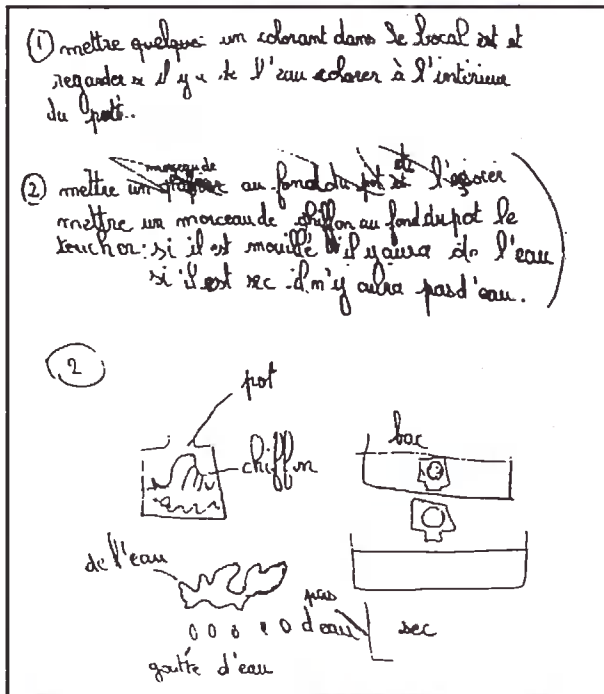 ① mettre quelque un colorant dans le bocal et
regarder si il y a de l'eau colorer à l'intérieur
du pot.
morceau de
② mettre un au fond du pot et l'
mettre un morceau de chiffon au fond du pot le
toucher: si il est mouillé il y aura de l'eau
si il est sec il n'y aura pas d'eau.
②
pot
chiffon
bac
de l'eau
pas
d'eau
sec
goutte d'eau